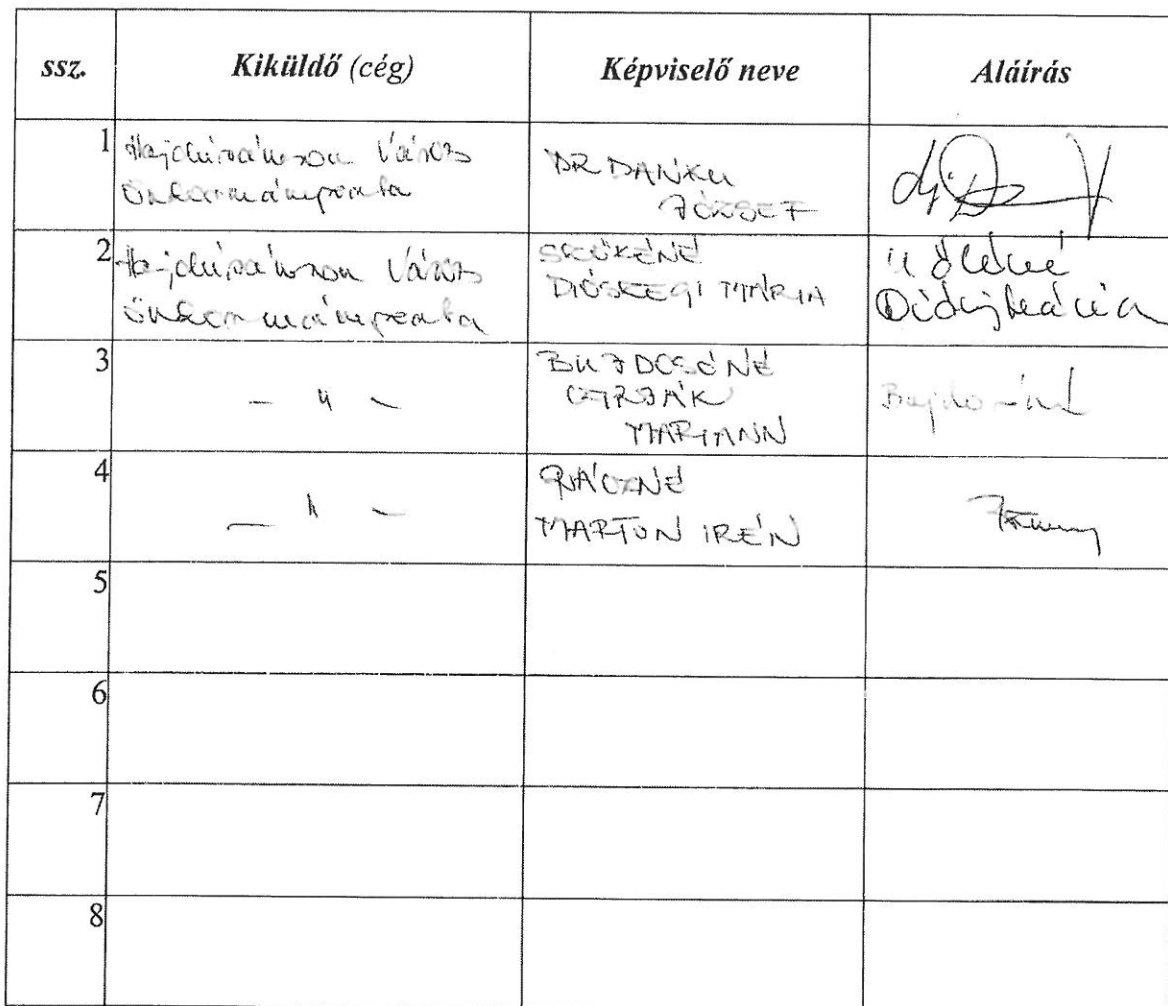 ssz. Kiküldő (cég) Képviselő neve Aláírás
1 Hajdúsámson Város
Önkormányzata
DR DANKU
JÓZSEF
2 Hajdúsámson Város
Önkormányzata
SZŰKÉNÉ
DIÓSZEGI MÁRIA
3 - 11 -
BUJDOSÓNÉ
CZIRJÁK
MARIANN
Bujdosóné
4 - 11 -
RÁCZNÉ
MARTON IRÉN
5
6
7
8